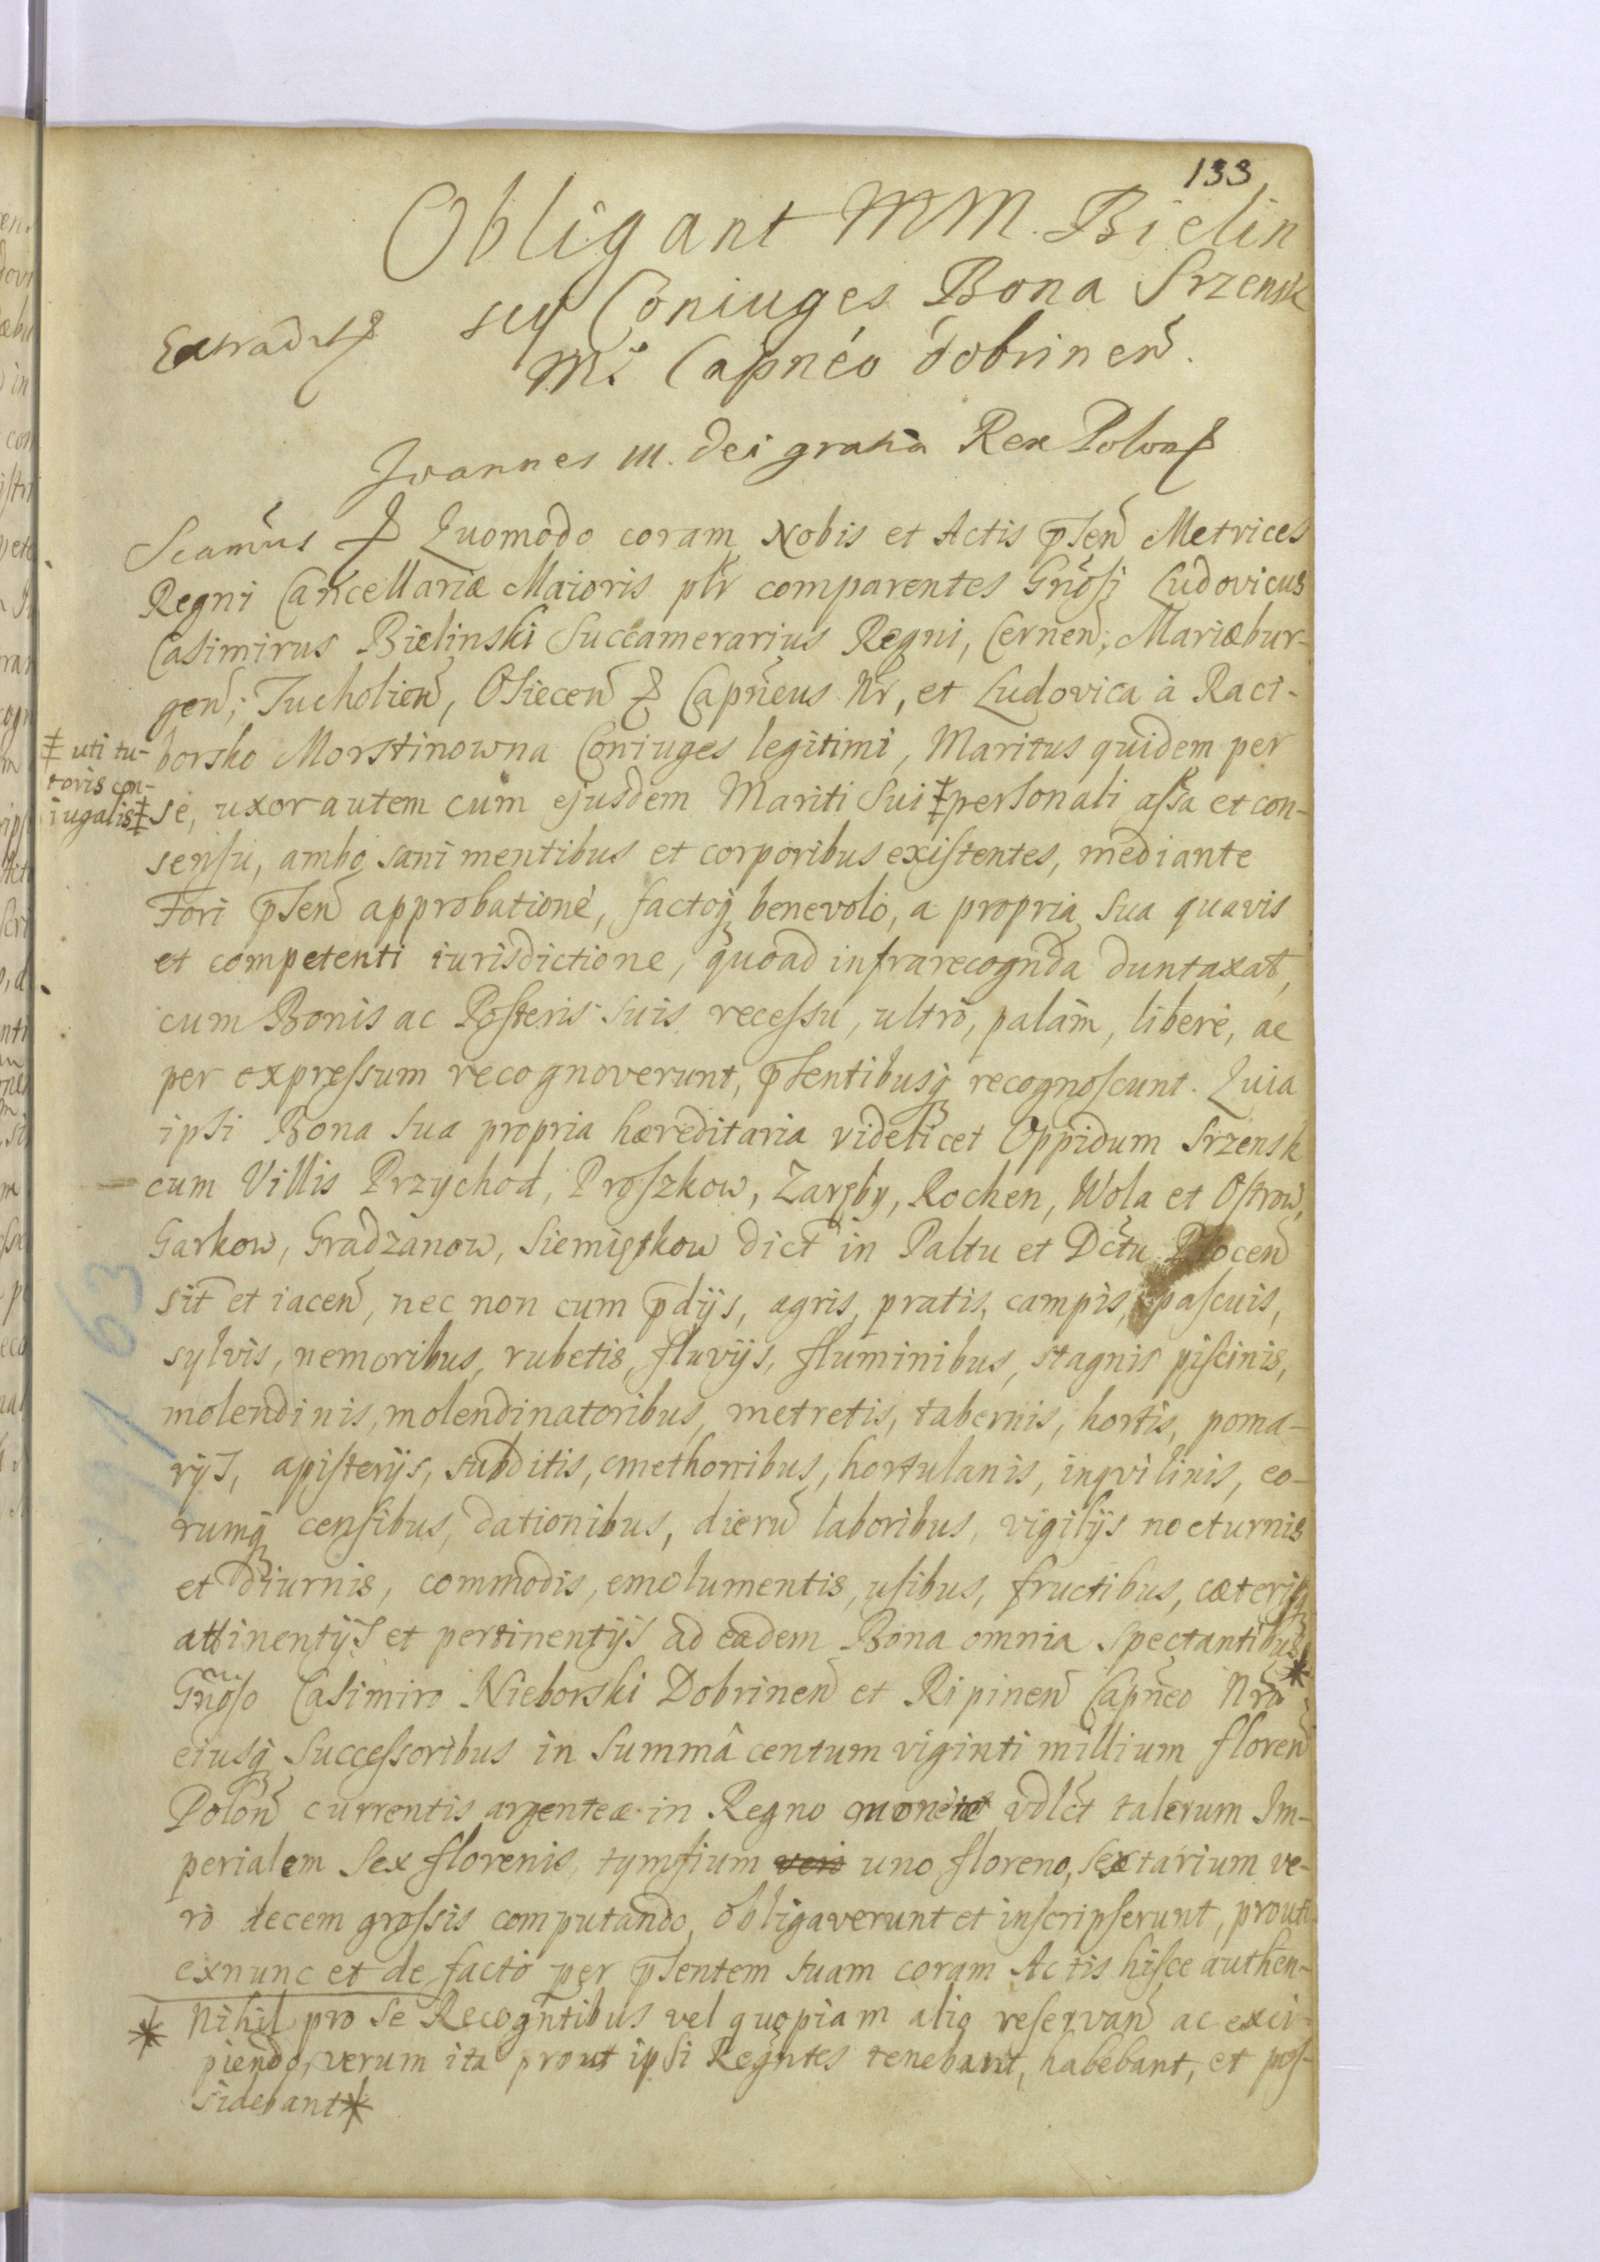 133
Obligant MM. Bielin
scy Coniuges Bona Srzensk
Mco Capnéo dobrinen̄.
Extradit
Joannes III. dei gratia Rex Polon
Scamus Quomodo coram Nobis et Actis p̄sen̄ Metrices
Regni Cancellariæ Maioris plr comparentes Gn̄osi Ludovicus
Casimirus Bielinski Succamerarius Regni, Cernen̄, Mariæbur-
gen̄, Tucholien̄, Osiecen̄ & Capn̄eus Nr, et Ludovica à Raci-
borsko Morstinowna Coniuges legitimi, Maritus quidem per
‡ uti tu-
toris con-
iugalis‡
se, uxor autem cum ejusdem Mariti Sui ‡ personali assa et con-
sensu, ambo sani mentibus et corporibus existentes, mediante
Fori p̄sen̄ approbatione, factoq benevolo, a propria sua quavis
et competenti iurisdictione, quoad infrarecognda duntaxat,
cum Bonis ac Posteris suis recessu, ultro, palàm, liberè, ac
per expressum recognoverunt, p̄sentibusq recognoscunt. Quia
ipsi Bona sua propria hæreditaria videlicet Oppidum Srzensk
cum Villis Przychod, Proszkow, Zaręby, Rochen, Wola et Ostrow,
Garkow, Gradzanow, Siemiątkow dict in Paltu et Dctu Plocen̄
sit et iacen̄, nec non cum p̄dijs, agris, pratis, campis, pascuis,
sylvis, nemoribus, rubetis, fluvijs, fluminibus, stagnis piscinis,
molendinis, molendinatoribus, metretis, tabernis, hortis, poma-
rijs, apisterijs, subditis, cmethonibus, hortulanis, inqvilinis, eo-
rumq censibus, dationibus, dieru laboribus, vigilijs nocturnis
et diurnis, commodis, emolumentis, usibus, fructibus, cæterisq
attinentijs et pertinentijs ad eadem Bona omnia spectantibus *
Gn̄oso Casimiro Nieborski Dobrinen̄ et Ripinen̄ Capn̄eo Nro
eiusq Successoribus in Summâ centum viginti millium floren̄
Polon̄ currentis argenteæ in Regno monetæ vdlct talerum Im-
perialem Sex florenis, tymfium vero uno floreno, sextarium ve-
rò decem grossis computando, obligaverunt et inscripserunt, prouti
exnunc et de facto per p̄sentem suam coram Actis hisce authen-
* Nihil pro se Recogntibus vel quopiam alio reservan̄ ac exci-
piendo, verum ita prout ipsi Regntes tenebant, habebant, et pos-
sidebant *